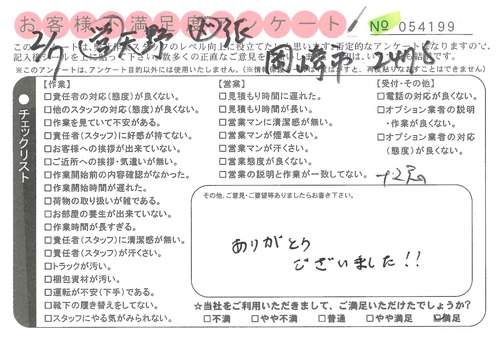 お客様の満足度アンケート No 054199
【作業】
□責任者の対応(態度)が良くない。
□他のスタッフの対応(態度)が良くない。
□作業を見ていて不安がある。
□責任者(スタッフ)に好感が持てない。
□お客様への挨拶が出来ていない。
□ご近所への挨拶・気遣いが無い。
□作業開始前の内容確認がなかった。
□作業開始時間が遅れた。
□荷物の取り扱いが雑である。
□お部屋の養生が出来ていない。
□作業時間が長すぎる。
□責任者(スタッフ)に清潔感が無い。
□責任者(スタッフ)が汗くさい。
□トラックが汚い。
□梱包資材が汚い。
□運転が不安(下手)である。
□靴下の履き替えをしてない。
□スタッフにやる気がみられない。
【営業】
□見積もり時間に遅れた。
□見積もり時間が長い。
□営業マンに清潔感が無い。
□営業マンが煙草くさい。
□営業マンが汗くさい。
□営業態度が良くない。
□営業の説明と作業が一致してない。
【受付・その他】
□電話の対応が良くない。
□オプション業者の説明
・作業が良くない。
□オプション業者の対応
(態度)が良くない。
チェックリスト
その他、ご意見・ご要望等ありましたらお書き下さい。
ありがとう
ございました!!
☆当社をご利用いただきまして、ご満足いただけたでしょうか?
□不満 □やや不満 □普通 □やや満足 □満足